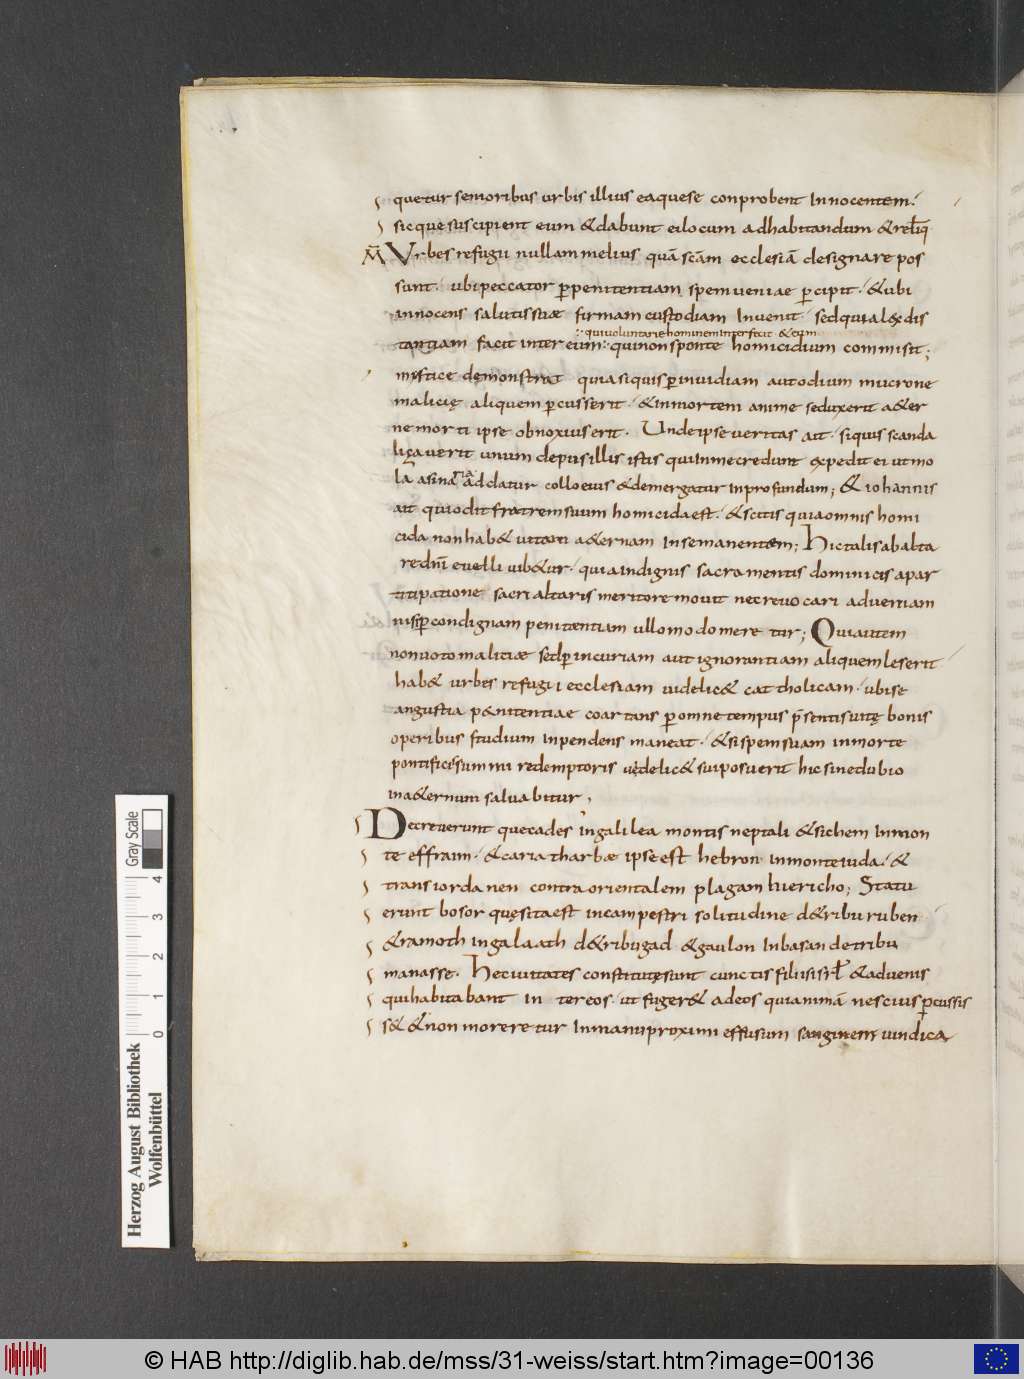 quetur senioribus urbis illius ea quese conprobent Innocentem.
sicque suscipient eum & dabunt ei locum ad habitandum & reliq̄
M̄ Urbes refugii nullam melius quā scām ecclesiā designare pos
sunt. ubi peccator p̱ penitentiam spem ueniae p̱cipit. & ubi
innocens salutis suae firmam custodiam Inuenit. sed quia lex dis
:· qui uoluntarie hominem interfecit & eum
tantiam facit inter eum :· qui non sponte homicidium commisit;
mystice demonstrat quia siquis p̱ inuidiam aut odium mucrone
malicię aliquem p̱cusserit. & in mortem anime seduxerit a&er
ne morti ipse obnoxius erit. Unde ipse ueritas ait. siquis scanda
lizauerit unum de pusillis istis qui in me credunt expedit ei ut mo
la asinaria addatur collo eius & demergatur in profundum; & iohannis
ait qui odit fratrem suum homicida est. & scitis quia omnis homi
cida non hab& uitam a&ernam in se manentem; Hic talis ab alta
re dnī euelli iub&ur. quia indignus sacramentis dominicis a par
ticipatione sacri altaris merito remouit nec reuocari ad ueniam
nisi p̱ condignam penitentiam ullo modo meretur; Qui autem
non uoto malitiae sed p̱ incuriam aut ignorantiam aliquem leserit
hab& urbes refugii ecclesiam uidelic& catholicam. ubi se
angustia penitentiae coartans p̱ omne tempus p̄sentis uitę bonis
operibus studium inpendens maneat. & si spem suam in morte
pontificis summi redemptoris uidelic& sui posuerit hic sine dubio
in a&ernum saluabitur,
Decreuerunt que cades in galilea montis neptali & sichem in mon
te effraim. & cariatharbae ipse est hebron in monte iuda. &
trans iordanen contra orientalem plagam hiericho; Statu
erunt bosor quę sita est in campestri solitudine de tribu ruben
& ramoth in galaath de tribu gad & gaulon In basan de tribu
manasse. Hec ciuitates constitutę sunt cunctis filiis isrl & aduenis
qui habitabant inter eos. ut fuger& ad eos qui animā nescius p̱cussis
s& & non moreretur In manu proximi effusum sanguinem uindica
Gray Scale
4
3
2
1
0
Herzog August Bibliothek
Wolfenbüttel
© HAB http://diglib.hab.de/mss/31-weiss/start.htm?image=00136